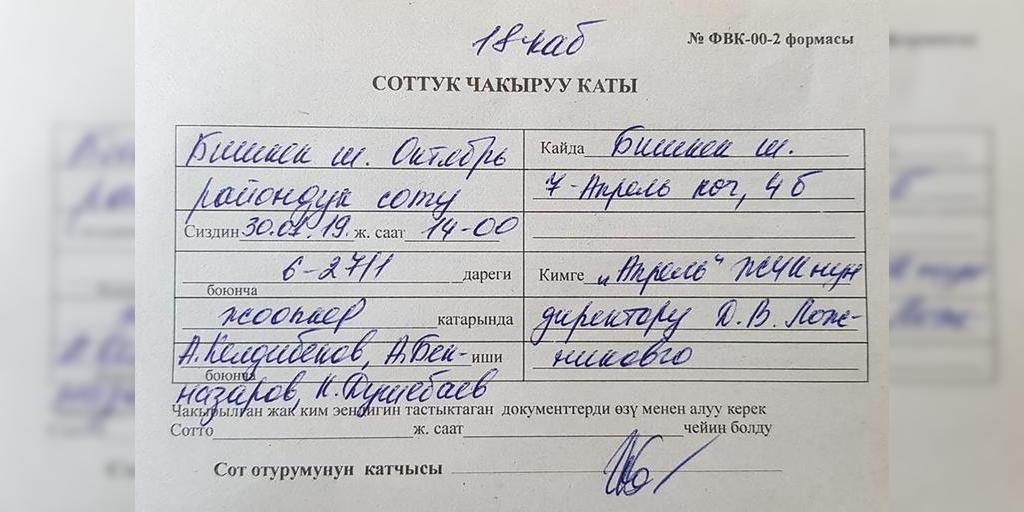 18 каб
№ ФВК-00-2 формасы
СОТТУК ЧАКЫРУУ КАТЫ
Бишкек ш. Октябрь
райондук соту
Сиздин 30.01.19. ж. саат 14-00
6-2711 дареги
боюнча
жоопкер катарында
А.Келдибеков, А.Бек- иши
боюнча
назаров, К.Душебаев
Кайда Бишкек ш.
7-Апрель көч, 4 б
Кимге „Апрель" ЖЧК нун
директору Д.В. Лож-
никовго
Чакырылган жак ким экендигин тастыктаган документтерди өзү менен алуу керек
Сотто ж. саат чейин болду
Сот отурумунун катчысы